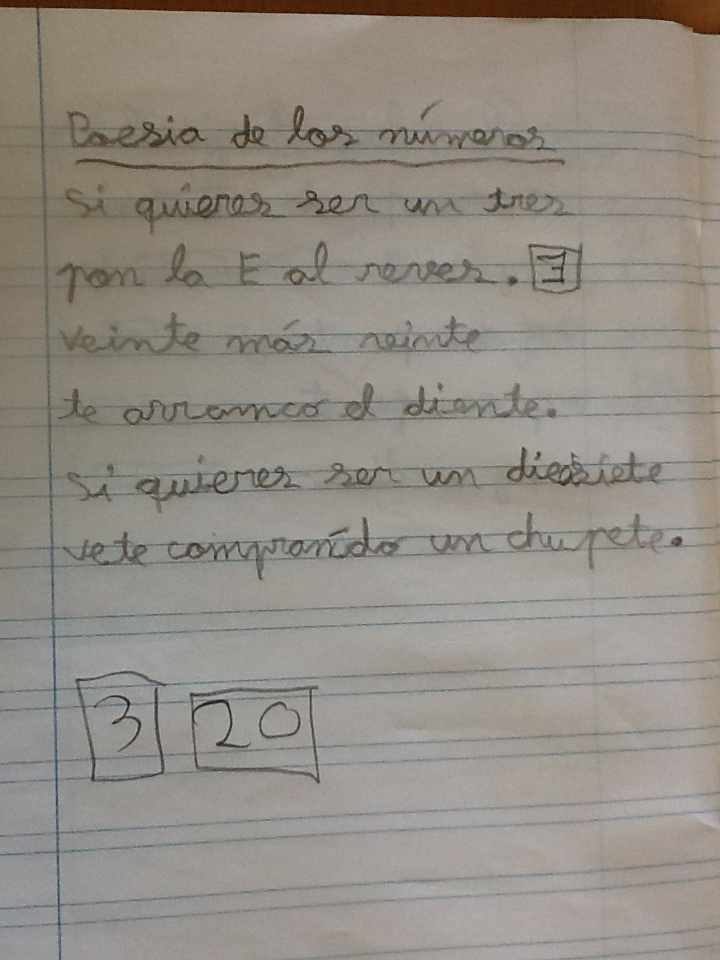 Poesia de los números
si quieres ser un tres
pon la E al reves. Ǝ
veinte más veinte
te arranco el diente.
si quieres ser un diecisiete
vete comprando un chupete.
3 20